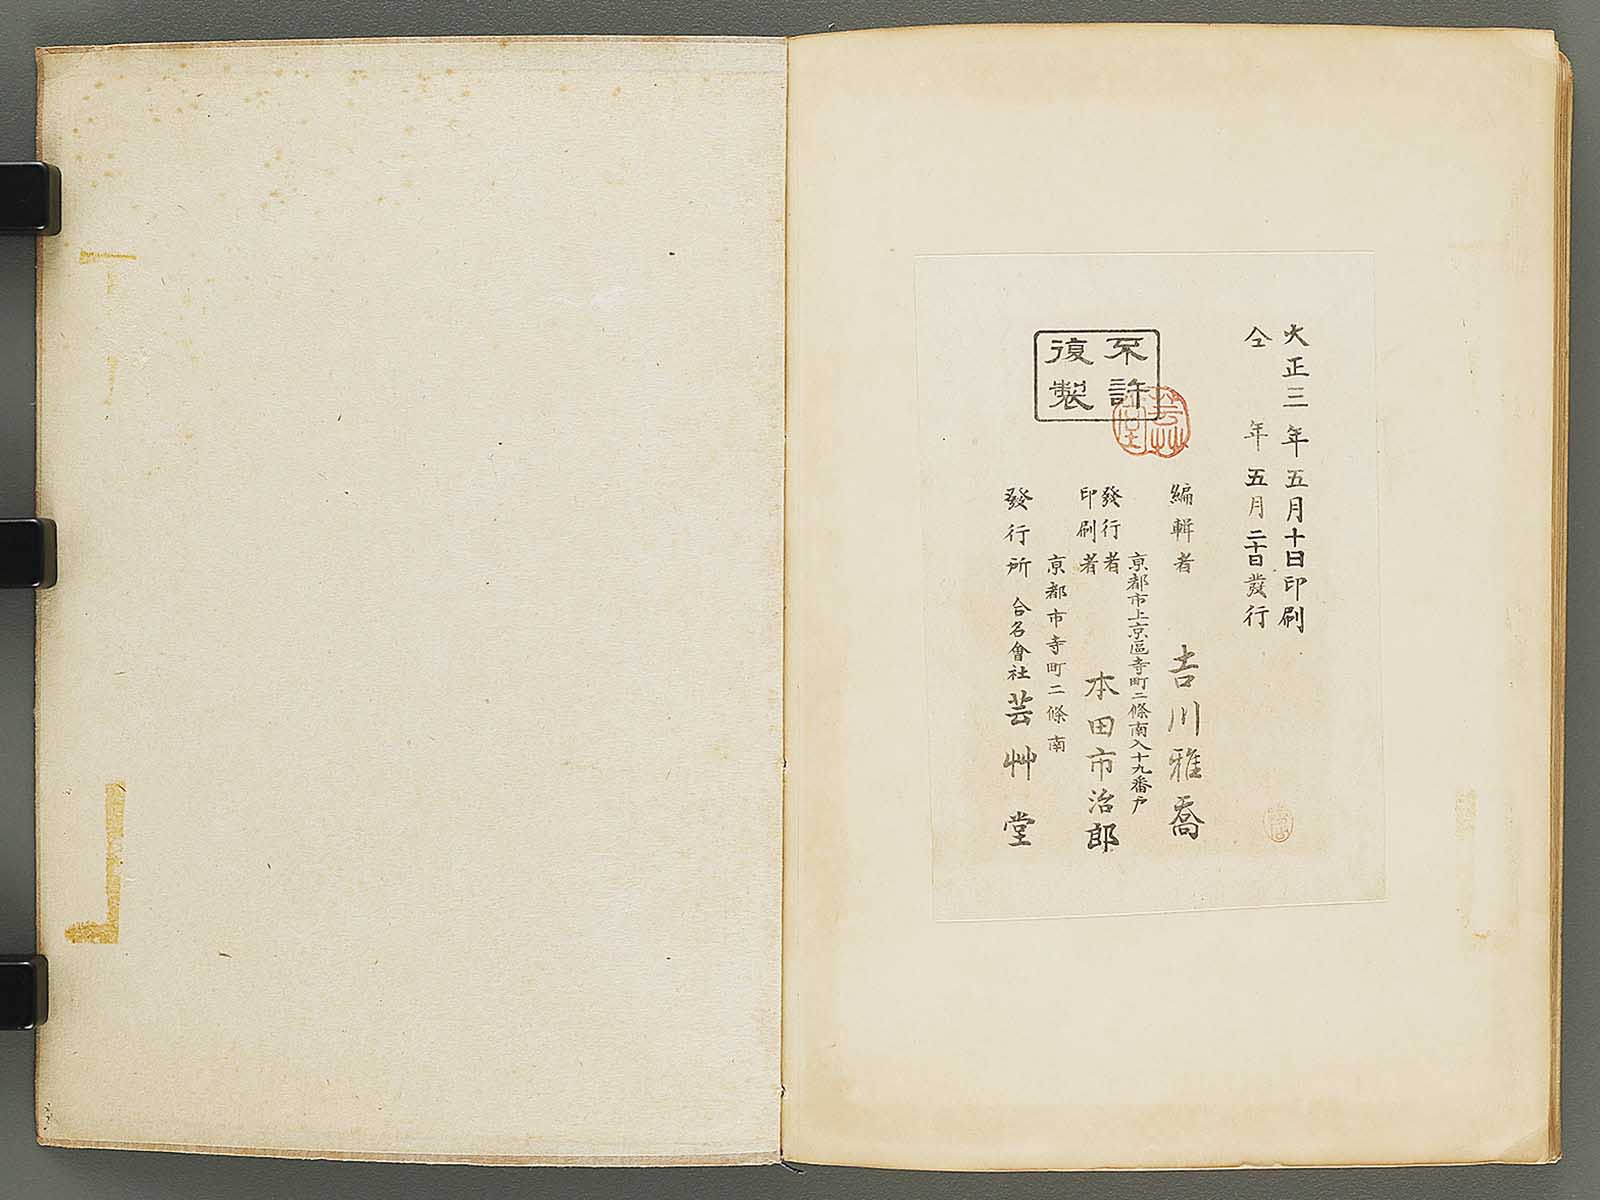 大正三年五月十日印刷
仝年五月二十日發行
不許
復製
芸艸堂
編輯者 吉川雅喬
京都市上京區寺町二條南入十九番戶
發行者
印刷者
本田市治郎
京都市寺町二條南
發行所 合名會社 芸艸堂